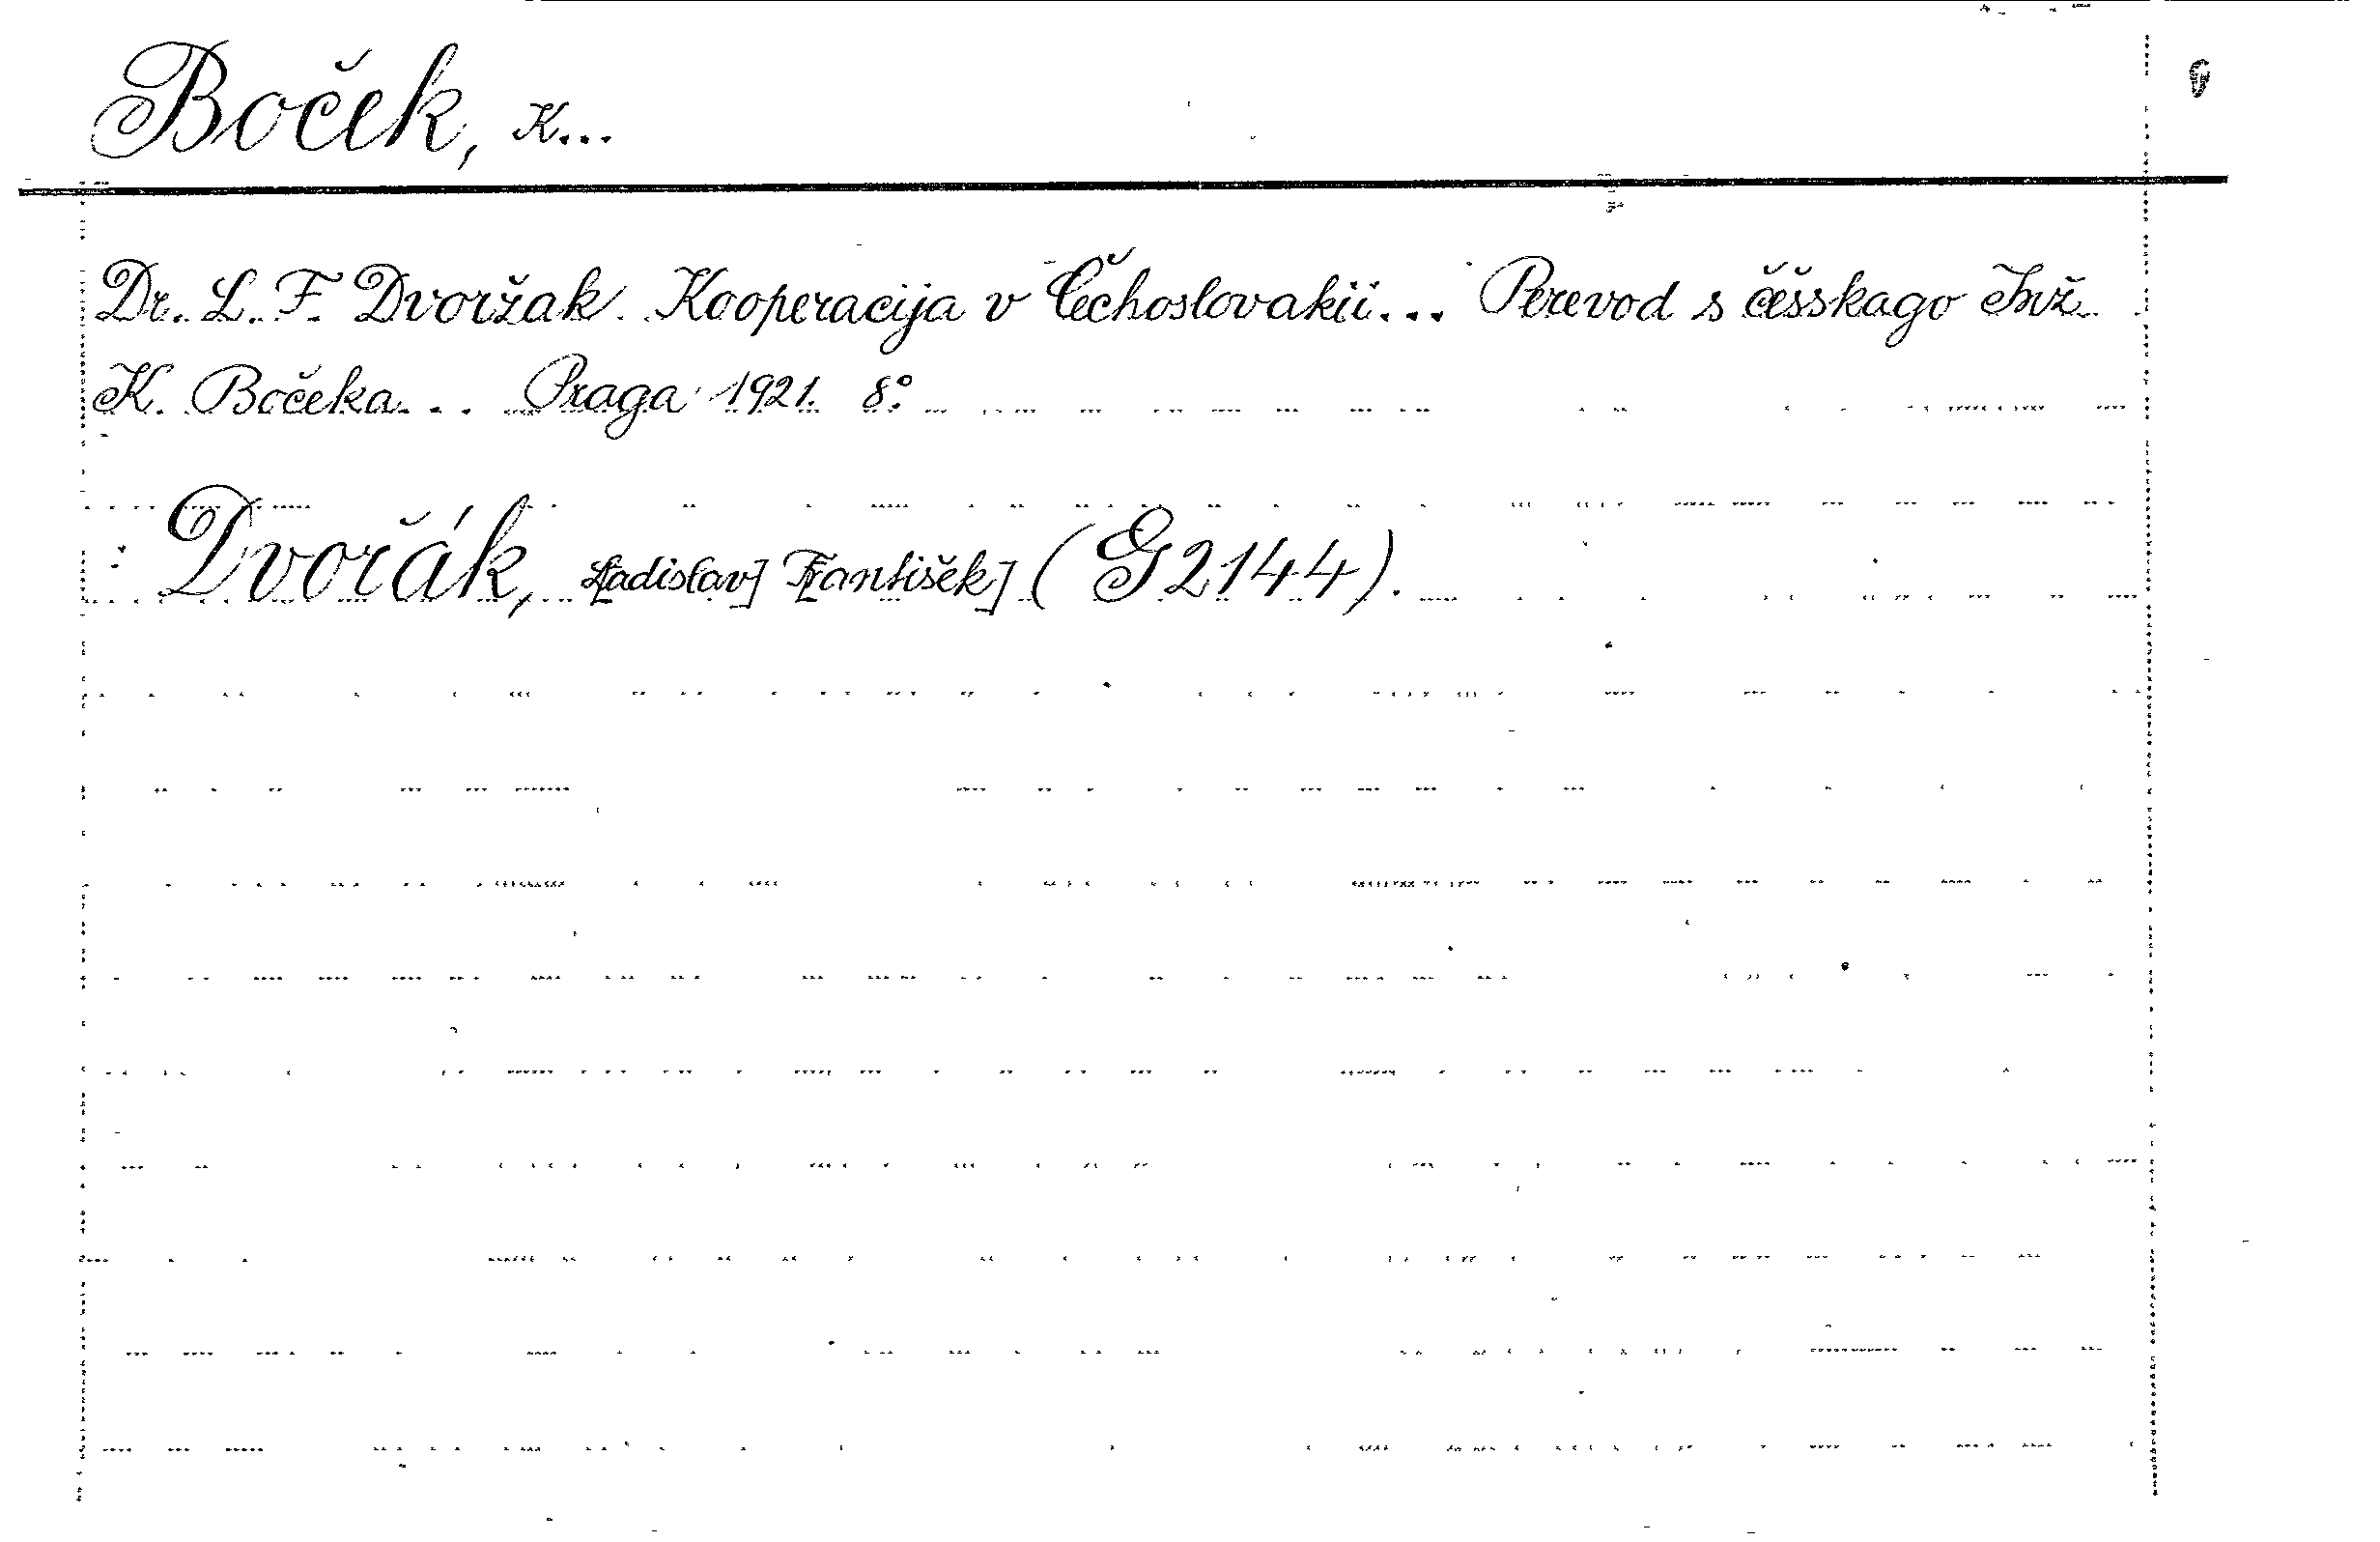 Boček, K...
Dr. L. F. Dvoržak. Kooperacija v Čechoslovakii... Perevod s češskago Inž.
K. Bočeka... Praga 1921. 8°.
: Dvořák, L[adislav] F[rantišek] (G 2144).